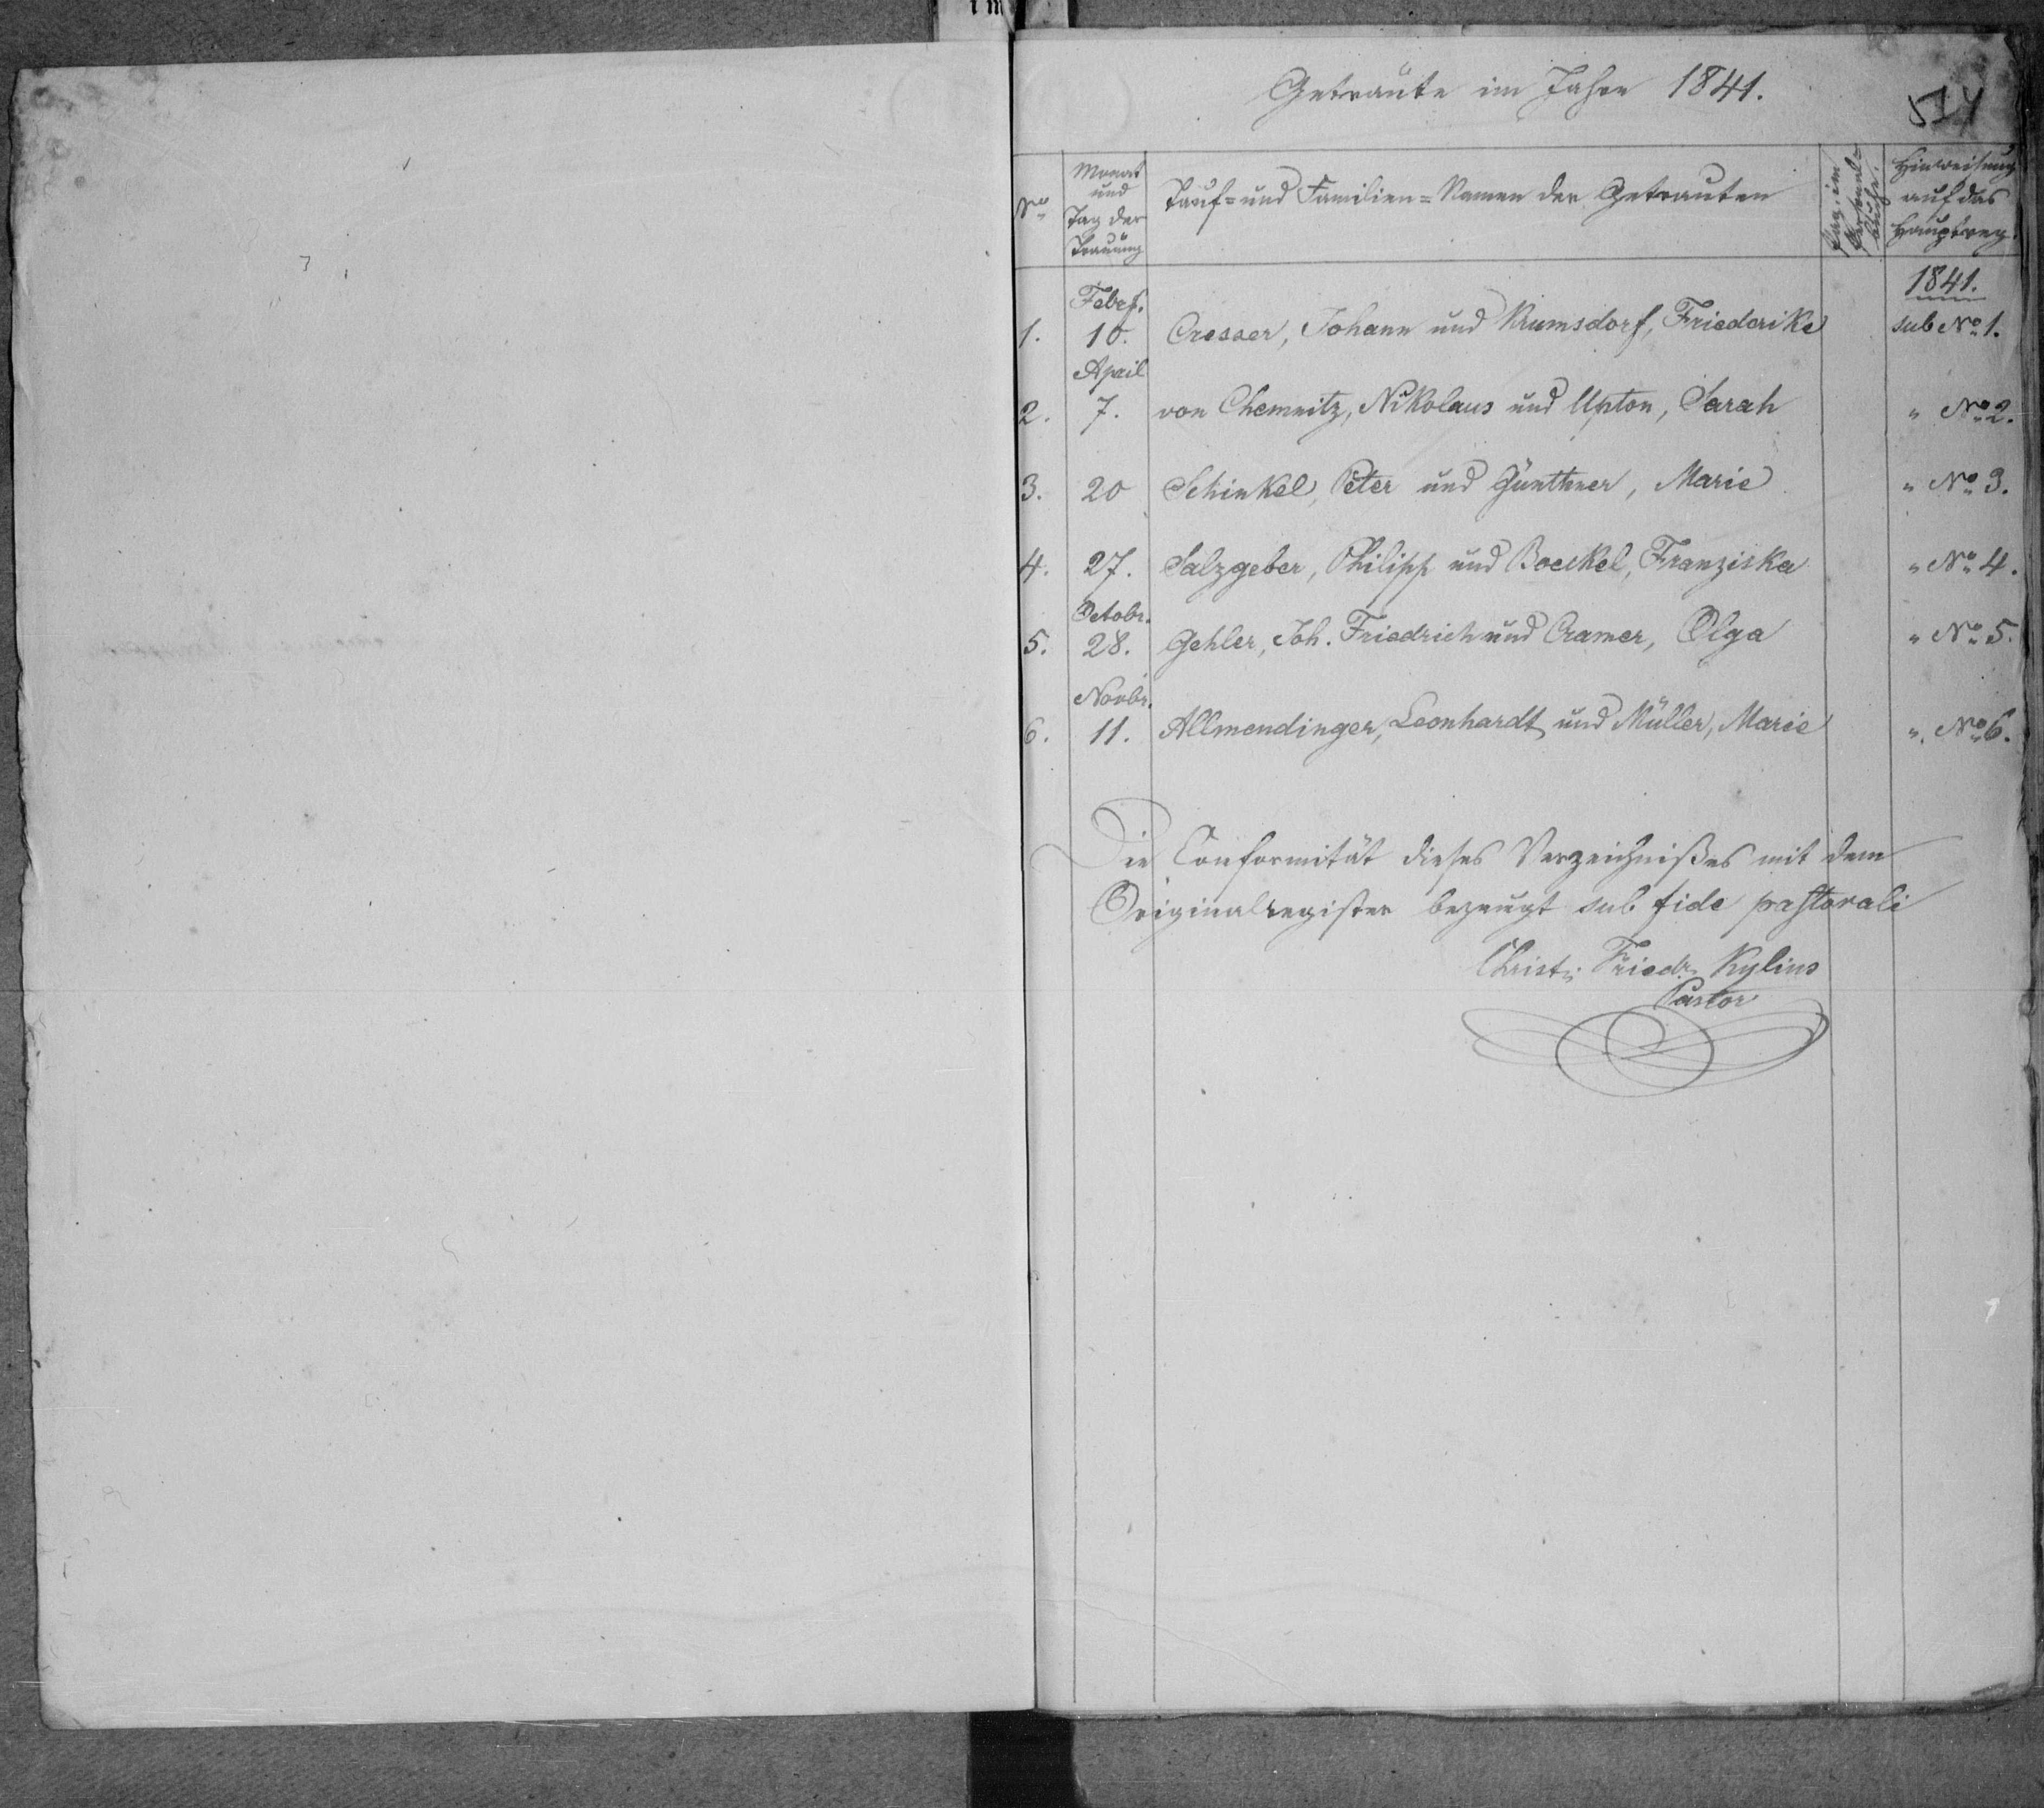 Getraute im Jahre 1841.
514
No
Monat
und
Tag der
Trauung
Tauf- und Familien-Namen der Getrauten
Pag. im
Personal-
buche.
Hinweisung
auf das
Hauptreg.
1841.
Febr.
1. 10. Cresser, Johann und Krumsdorf, Friederike sub No 1.
April
2. 7. von Chemnitz, Nikolaus und Upton, Sarah " No 2.
3. 20 Schinkel, Peter und Günthner, Marie " No 3.
4. 27. Salzgeber, Philipp und Boeckel, Franziska " No 4.
Octobr.
5. 28. Gehler, Joh. Friedrich und Cramer, Olga " No 5.
Novbr.
6. 11. Allmendinger, Leonhardt und Müller, Marie " No 6.
Die Conformität dieses Verzeichnißes mit dem
Originalregister bezeugt sub fide pastorali
Christ. Friedr. Kylius
Pastor